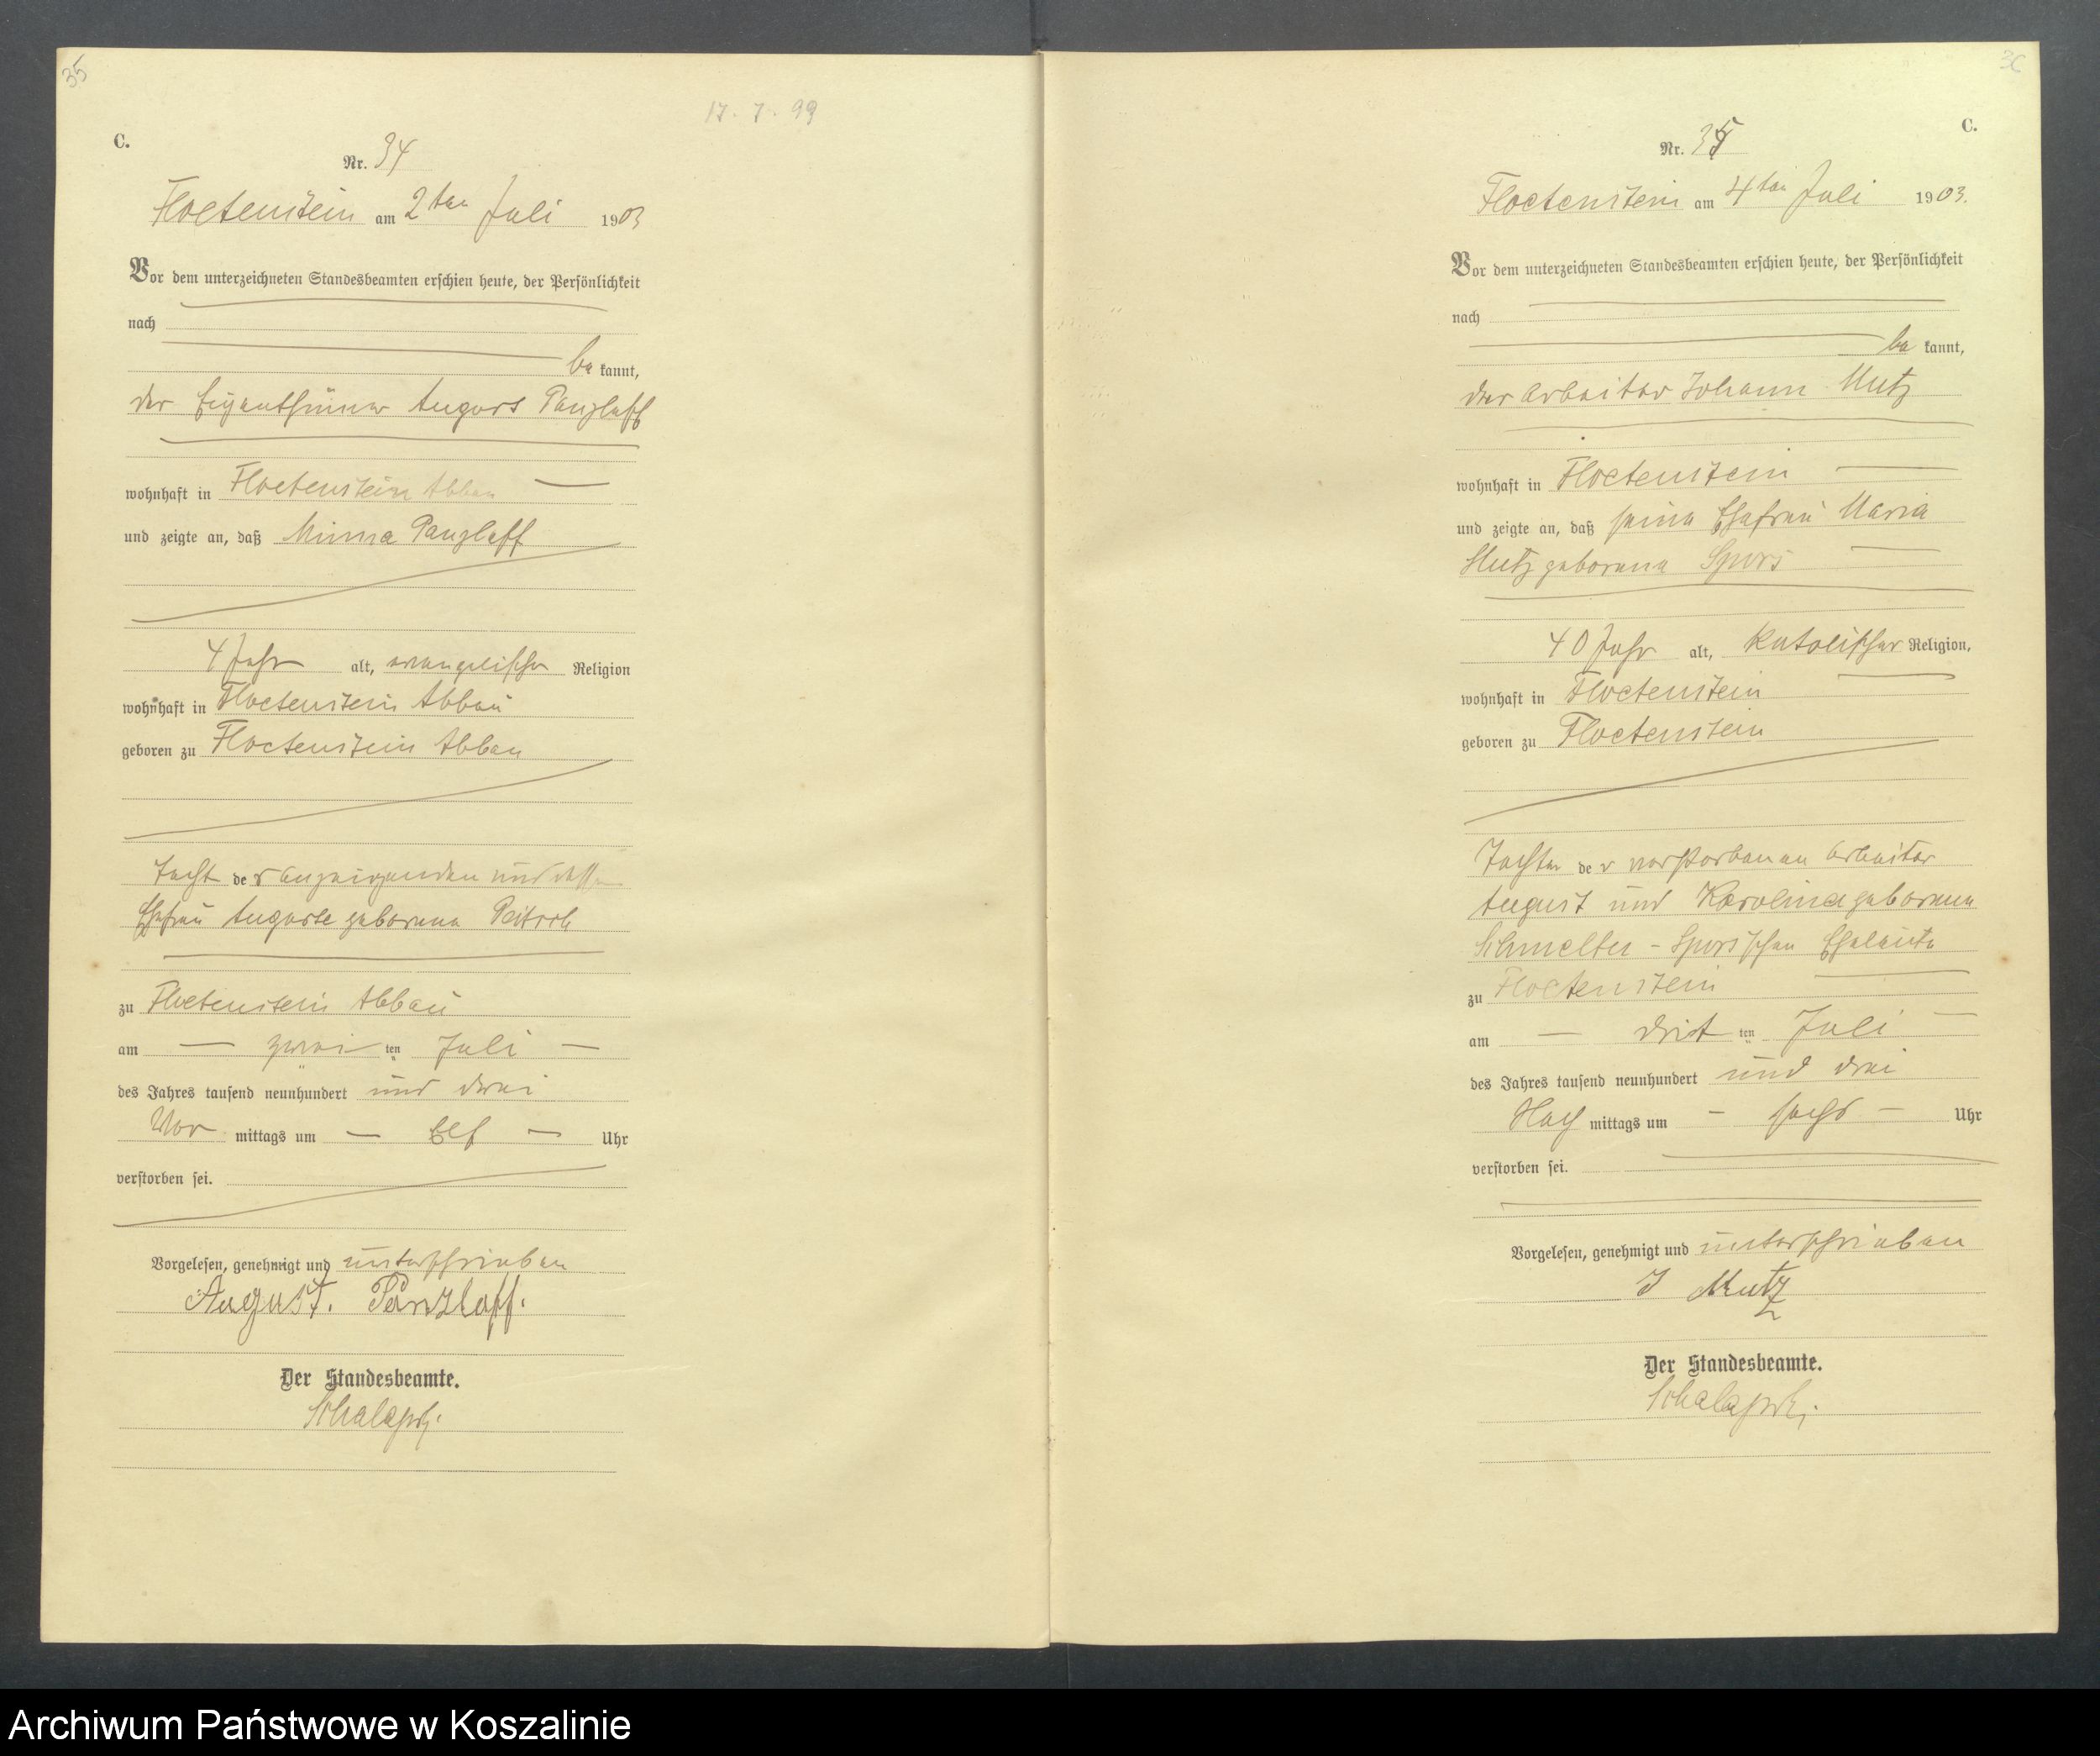 35
17. 7. 99
C.
Nr. 34
Floetenstein am 2ten Juli 1903
Vor dem unterzeichneten Standesbeamten erschien heute, der Persönlichkeit
nach
be kannt,
der Eigenthümer August Panzlaff
wohnhaft in Floetenstein Abbau
und zeigte an, daß Minna Panzlaff
4 Jahr alt, evangelischer Religion
wohnhaft in Floetenstein Abbau
geboren zu Floetenstein Abbau
Tocht der Anzeigenden und dessen
Ehefrau Auguste geborene
zu Floetenstein Abbau
am zwei ten Juli
des Jahres tausend neunhundert und drei
Vor mittags um Elf Uhr
verstorben sei.
Vorgelesen, genehmigt und unterschrieben
August. Panzlaff.
Der Standesbeamte.
36
C.
Nr. 35
Floetenstein am 4ten Juli 1903.
Vor dem unterzeichneten Standesbeamten erschien heute, der Persönlichkeit
nach
be kannt,
der Arbeiter Johann Mutz
wohnhaft in Floetenstein
und zeigte an, daß seine Ehefrau Maria
Mutz geborene Spors
40 Jahr alt, katolischer Religion,
wohnhaft in Floetenstein
geboren zu Floetenstein
Tochter der verstorbenen Arbeiter
August und Karolina geborene
Schmelter - Spors'schen Eheleute
zu Floetenstein
am drit ten Juli
des Jahres tausend neunhundert und drei
Nach mittags um sechs Uhr
verstorben sei.
Vorgelesen, genehmigt und unterschrieben
J Mutz
Der Standesbeamte.
Archiwum Państwowe w Koszalinie